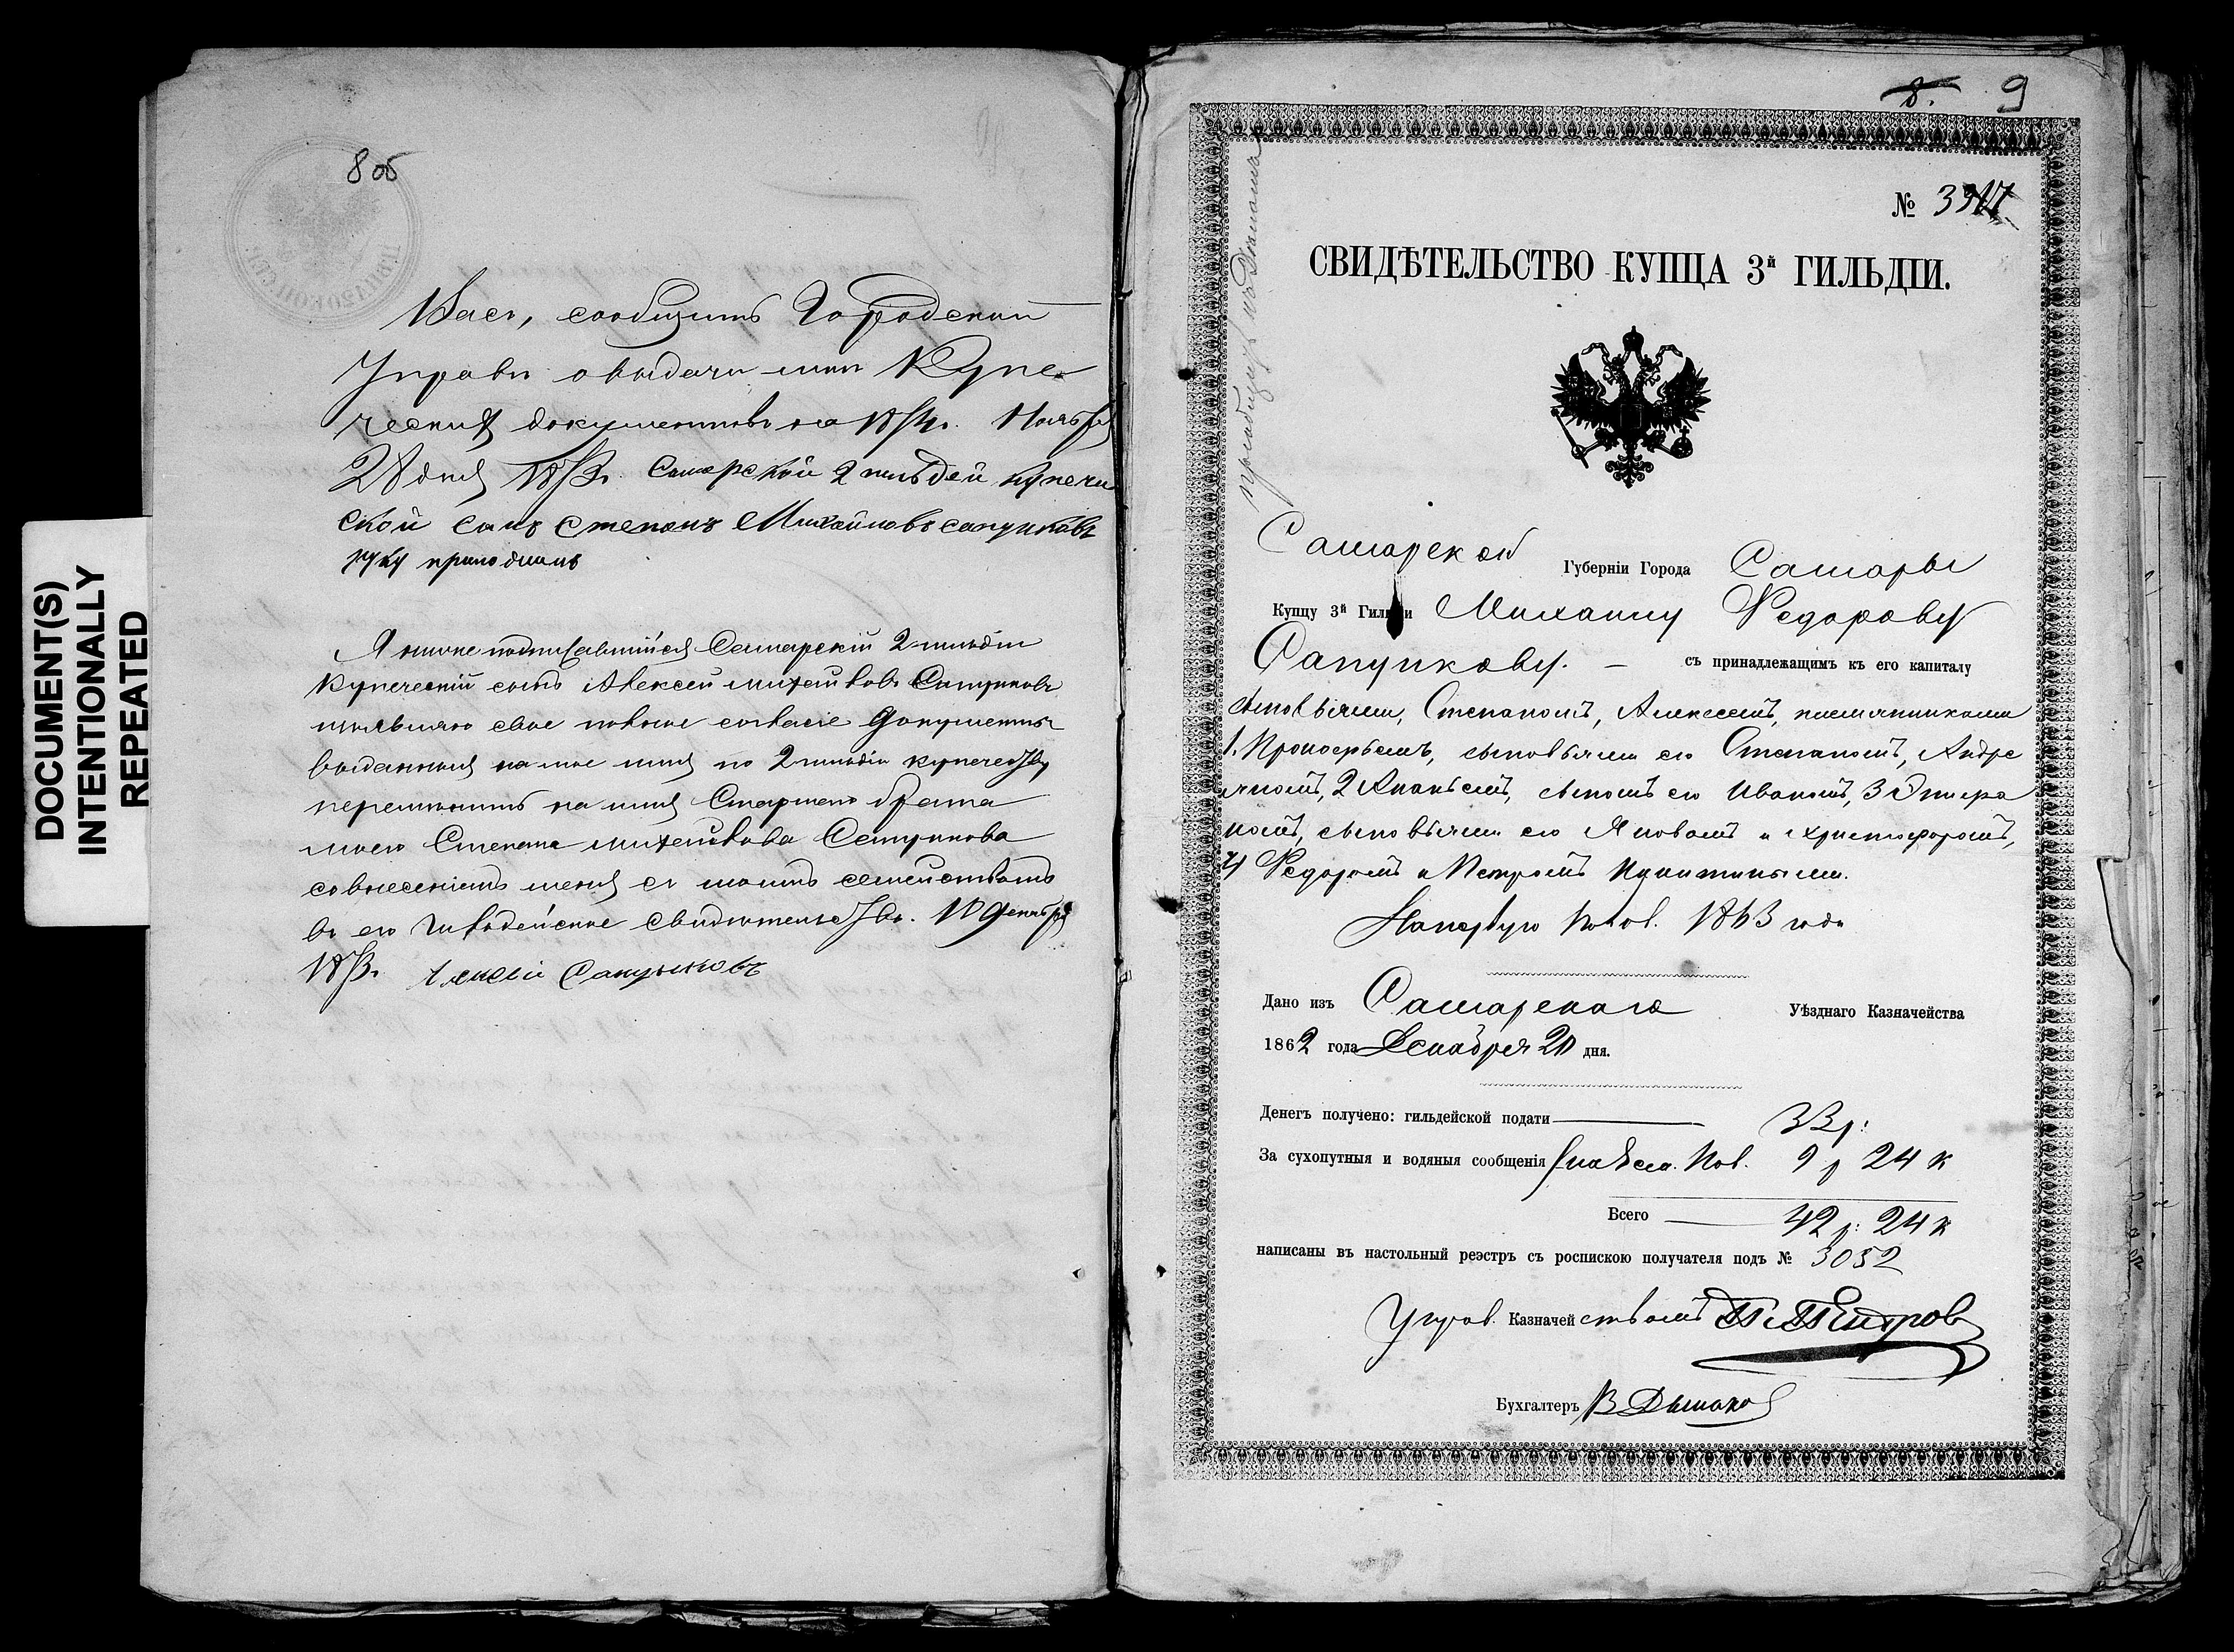 DOCUMENT(S)
INTENTIONALLY
REPEATED
8 об
Васъ, сообщить Городской
Управѣ о выдачи мнѣ Купе
ческихъ документовъ на 187 г. Ноября
28 дня 187 г. Самарской 2 гильдей купечи
ской сынъ Степанъ Михайловъ Сапунковъ
руку приложилъ
Я ниже подписавшийся Самарскій 2 гильдіи
Купеческій сынъ Алексей Михайловъ Сапунковъ
изъявляю свое полное согласіе документы
выданныя на мое имя по 2 гильдіи купечеству
переименить на имя Старшего брата
моего Степана Михайлова Сапункова
со внесеніемъ меня съ моимъ семействомъ
въ его Гильдейское свидѣтельство. 10 Декабря
187 г. Алексей Сапунковъ
8. 9
№
СВИДѢТЕЛЬСТВО КУПЦА 3й ГИЛЬДІИ.
Самарской Губерніи Города Самары
Купцу 3й Гильдіи Михаилу Федорову
Сапункову. — съ принадлежащимъ къ его капиталу
сыновьями, Степаномъ, Алексеемъ, племянниками
1. Прокофьемъ, сыновьями его Степаномъ, Андре
яномъ, 2 Ананьемъ, сыномъ его Иваномъ, 3
сыновьями его Яковомъ и Христофоромъ,
4) Федоромъ и Петромъ Никитиными.
На первую полов. 1863 года
Дано изъ Самарскаго Уѣзднаго Казначейства
1862 года Декабря 20 дня.
Денегъ получено: гильдейской подати — 33 р:
За сухопутныя и водяныя сообщенія 9 р 24 к
Всего — 42 р: 24 к
написаны въ настольный реэстръ съ роспискою получателя подъ № 3052
Управ. Казначействомъ П. Петров
Бухгалтеръ В Дымков